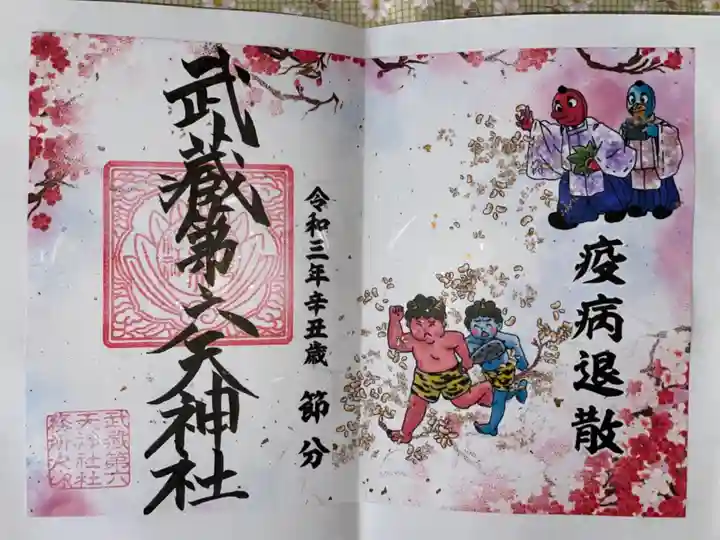 疫病退散
令和三年辛丑歳 節分
武蔵第六天神社
武蔵第六
天神社社